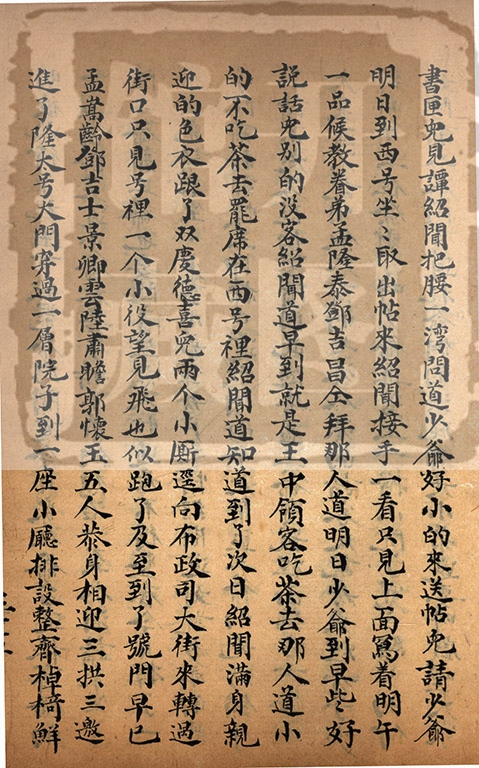 書匣兒見譚紹聞把腰一灣問道少爺好小的來送帖兒請少爺
明日到西号坐〻取出帖來紹聞接手一看只見上面寫着明午
一品候教眷弟孟隆泰鄧吉昌仝拜那人道明日少爺到早些好
説話兒别的没客紹聞道早到就是王中領客吃茶去那人道小
的不吃茶去罷席在西号裡紹聞道知道到了次日紹聞滿身親
迎的色衣跟了双慶德喜兒兩个小厮逕向布政司大街來轉過
街口只見号裡一个小役望見飛也似跑了及至到了號門早已
孟嵩齡鄧吉士景卿雲陸肅瞻郭懷玉五人恭身相迎三拱三邀
進了隆大号大門穿過一層院子到一座小廳排設整齊棹椅鮮